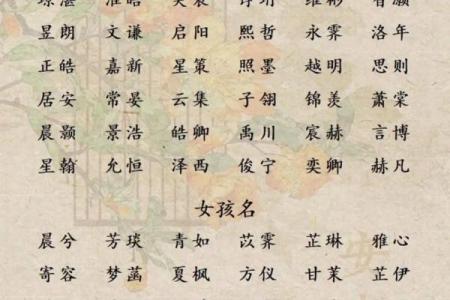 昱朗 文谦 启阳 熙哲 永霁 洛年
正皓 嘉新 星策 照墨 越明 思则
居安 常晏 云集 子翎 锦羡 萧棠
晨颢 景浩 皓卿 禹川 宸赫 言博
星翰 允恒 泽西 俊宁 奕卿 赫凡
女孩名
晨兮 芳琰 青如 苡霁 芷琳 雅心
寄容 梦菡 夏枫 方仪 甘茉 芷伊